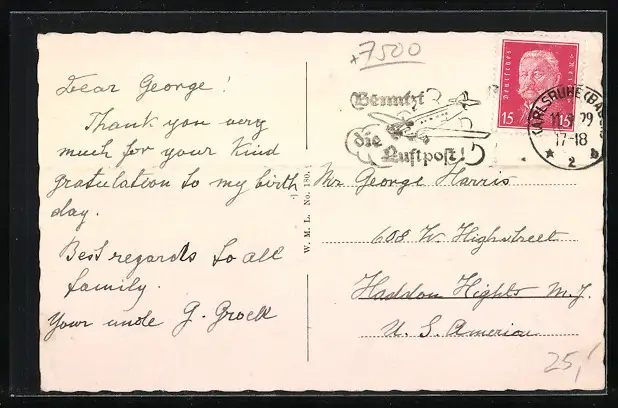 Dear George!
Thank you very
much for your kind
gratulation to my birth
day.
Best regards to all
family.
Your uncle G. Groell
W. M. L. No. 180.
+7500
Benutzt
die
Luftpost!
Deutsches Reich
15 15
KARLSRUHE (BADEN)
29
17-18
* 2 b
Mr George Harris
608 W. Highstreet
Haddon Highs N.J.
U. S. America
25,-